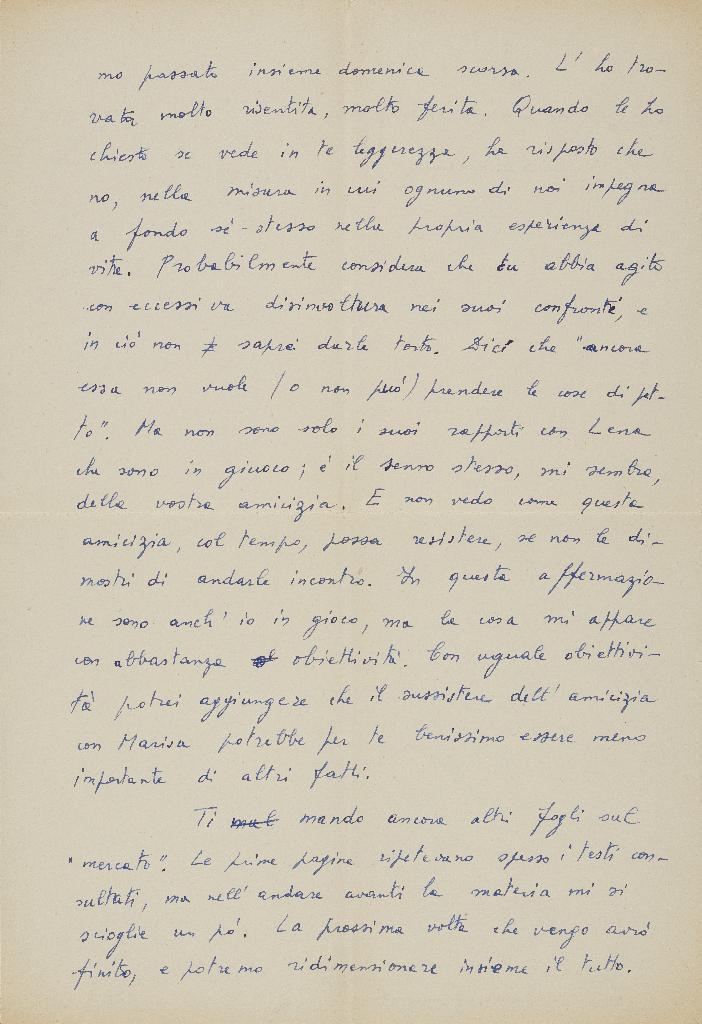 mo passato insieme domenica scorsa. L'ho tro-
vata molto risentita, molto ferita. Quando le ho
chiesto se vede in te leggerezza, ha risposto che
no, nella misura in cui ognuno di noi impegna
a fondo sé-stesso nella propria esperienza di
vita. Probabilmente considera che tu abbia agito
con eccessiva disinvoltura nei suoi confronti, e
in ciò non saprei darle torto. Dici che "ancora
essa non vuole (o non può) prendere le cose di pet-
to". Ma non sono solo i suoi rapporti con Lena
che sono in giuoco; é il senso stesso, mi sembra,
della vostra amicizia. E non vedo come questa
amicizia, col tempo, possa resistere, se non le di-
mostri di andarle incontro. In questa affermazio-
ne sono anch'io in gioco, ma la cosa mi appare
con abbastanza obiettività. Con uguale obiettivi-
tà potrei aggiungere che il sussistere dell'amicizia
con Marisa potrebbe per te benissimo essere meno
importante di altri fatti.
Ti mando ancora altri fogli sul
"mercato". Le prime pagine ripetevano spesso i testi con-
sultati, ma nell'andare avanti la materia mi si
scioglie un pó. La prossima volta che vengo avrò
finito, e potremo ridimensionare insieme il tutto.